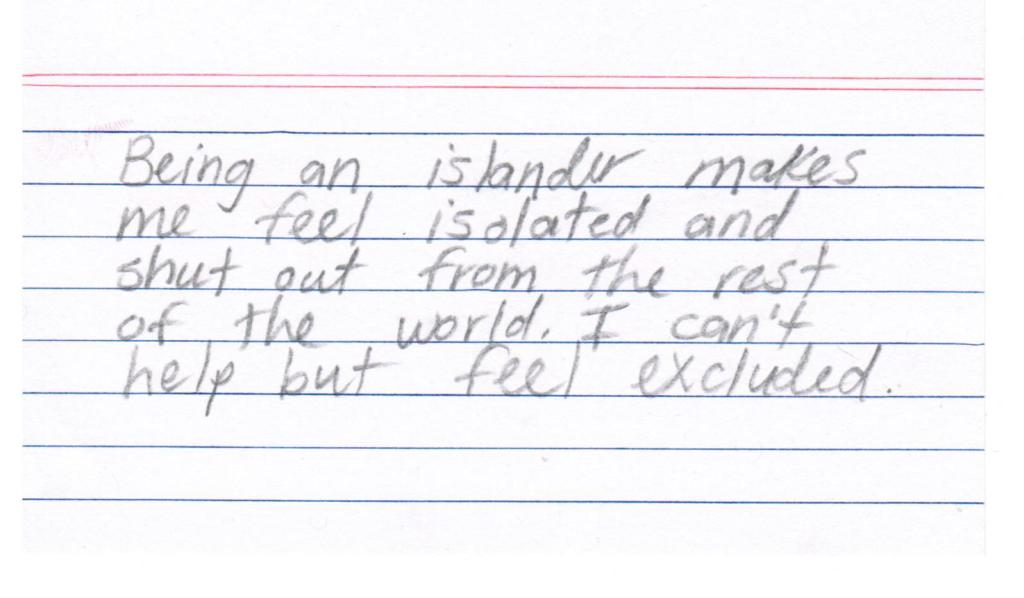 Being an islander makes
me feel isolated and
shut out from the rest
of the world. I can't
help but feel excluded.